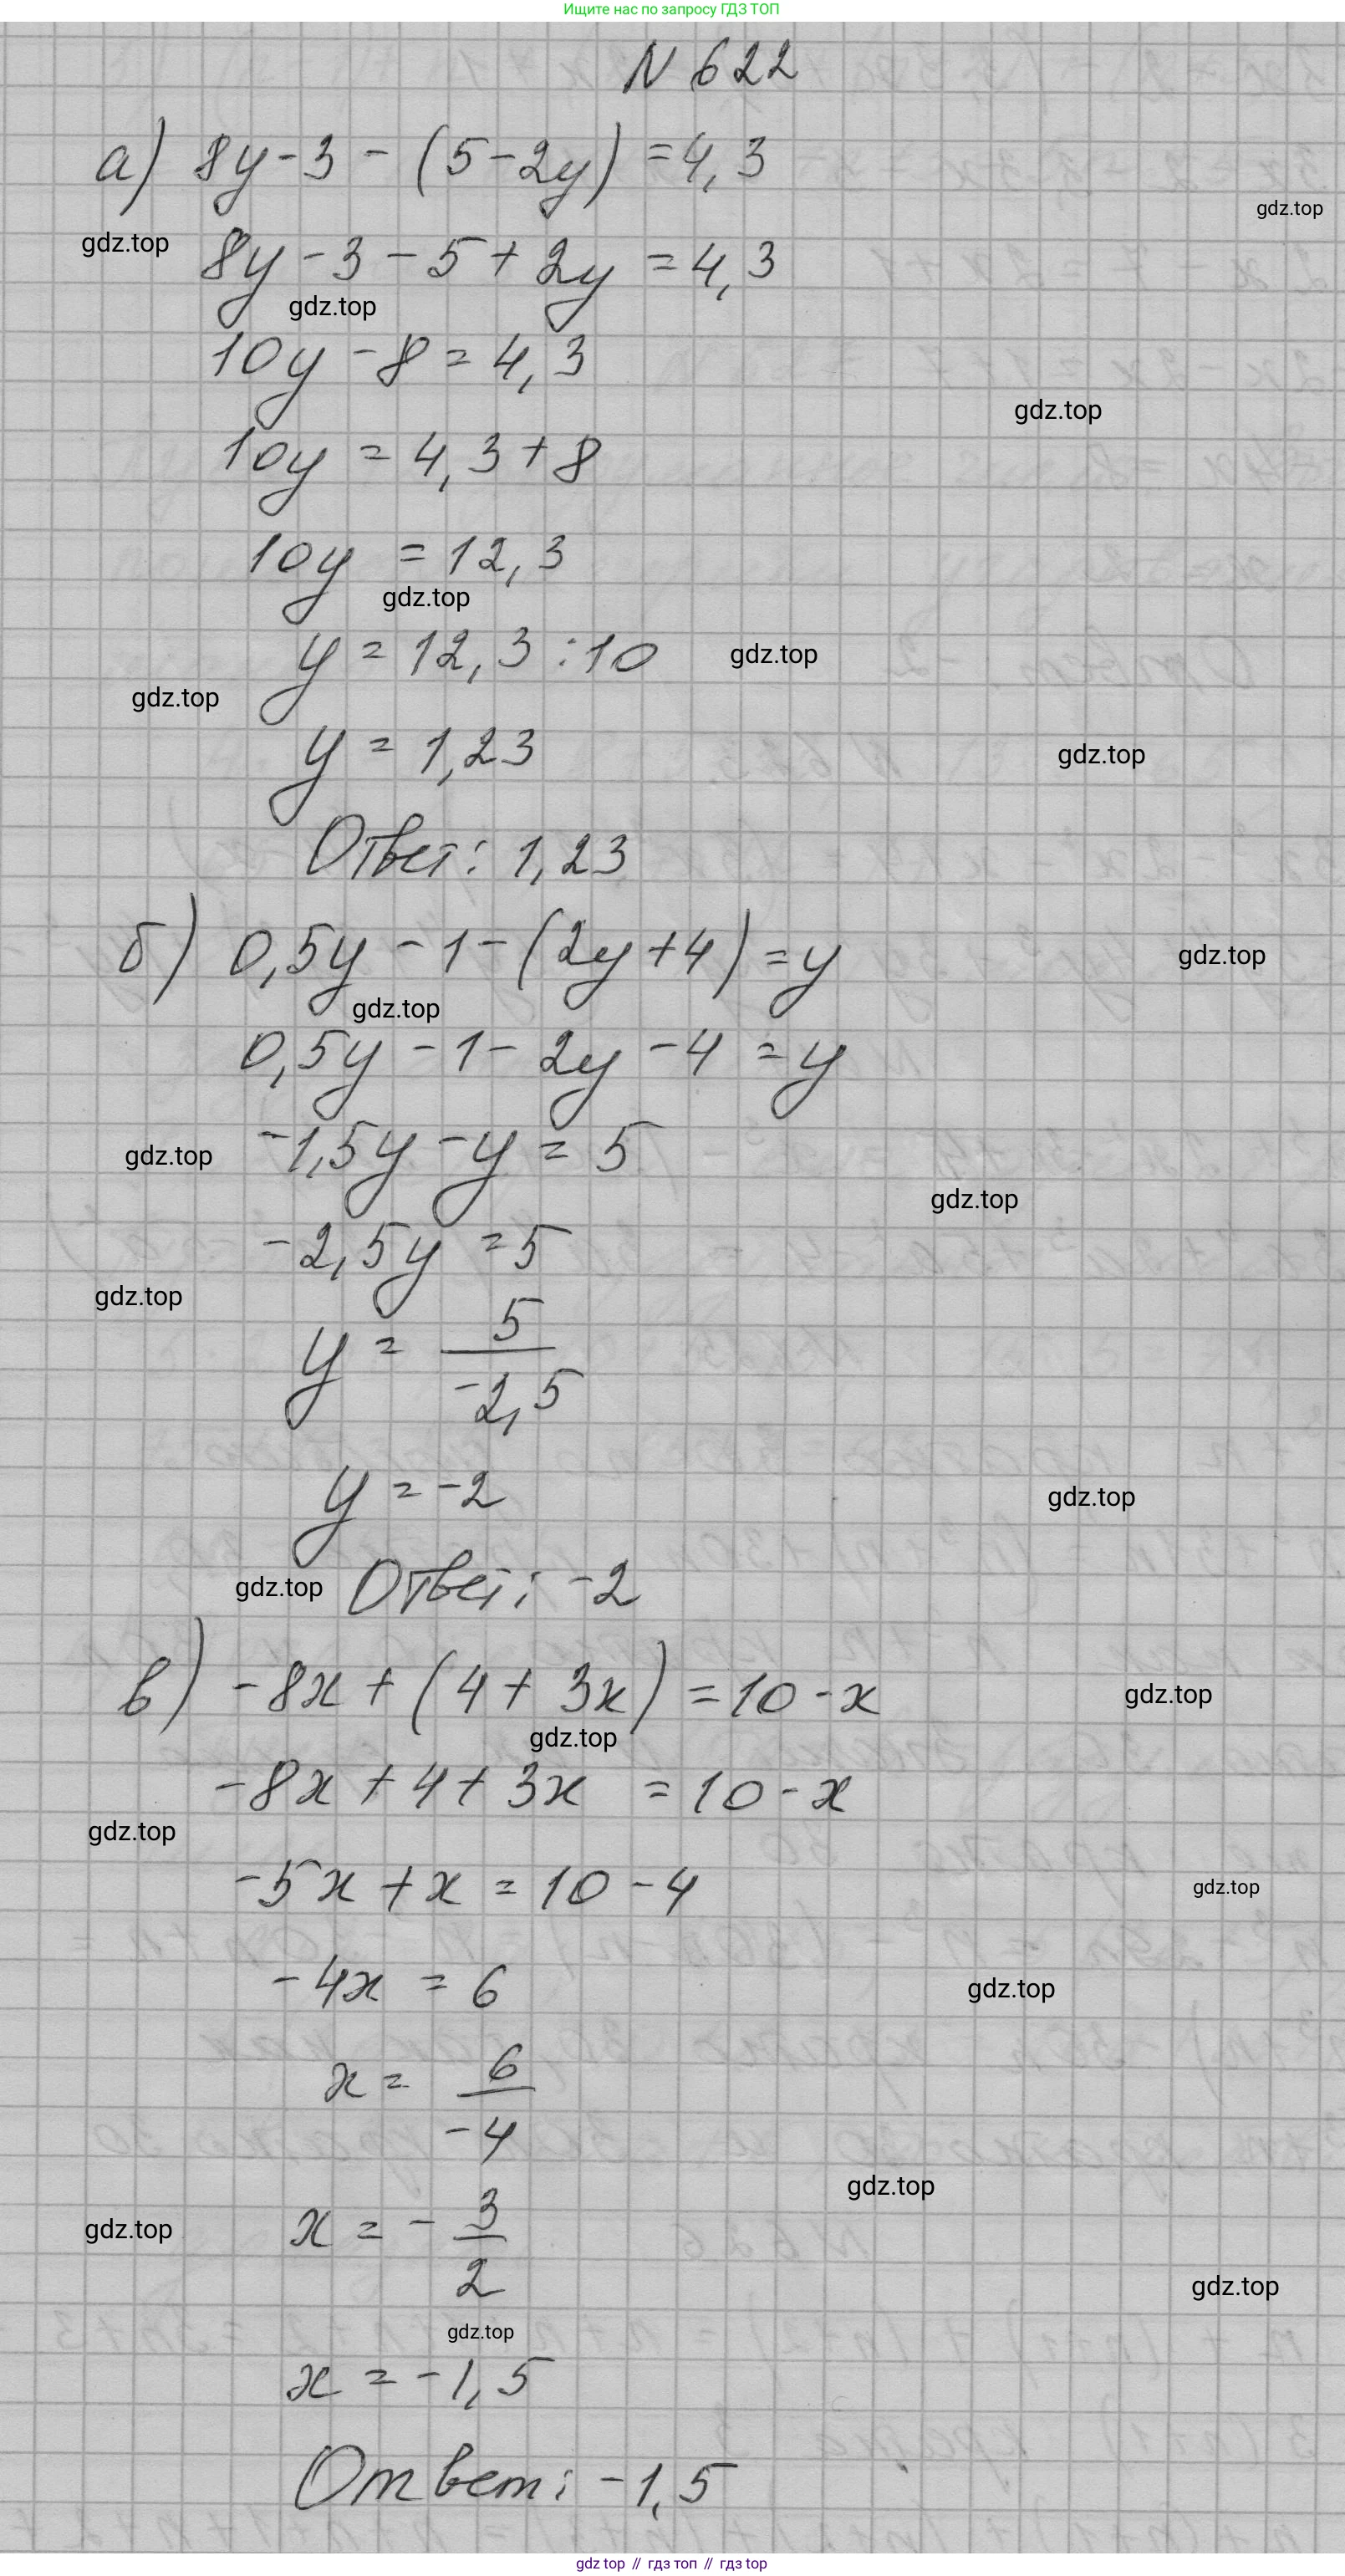 Ищите нас по запросу ГДЗ ТОП
N 622
а) 8y - 3 - (5 - 2y) = 4,3
gdz.top
gdz.top
8y - 3 - 5 + 2y = 4,3
gdz.top
10y - 8 = 4,3
gdz.top
10y = 4,3 + 8
10y = 12,3
gdz.top
y = 12,3 : 10
gdz.top
gdz.top
y = 1,23
gdz.top
Ответ: 1,23
б) 0,5y - 1 - (2y + 4) = y
gdz.top
gdz.top
0,5y - 1 - 2y - 4 = y
-1,5y - y = 5
gdz.top
gdz.top
-2,5y = 5
gdz.top
y = 5/-2,5
y = -2
gdz.top
gdz.top
Ответ: -2
в) -8x + (4 + 3x) = 10 - x
gdz.top
gdz.top
-8x + 4 + 3x = 10 - x
gdz.top
-5x + x = 10 - 4
gdz.top
-4x = 6
gdz.top
x = 6/-4
gdz.top
x = - 3/2
gdz.top
gdz.top
gdz.top
x = -1,5
Ответ: -1,5
gdz top // гдз топ // гдз top